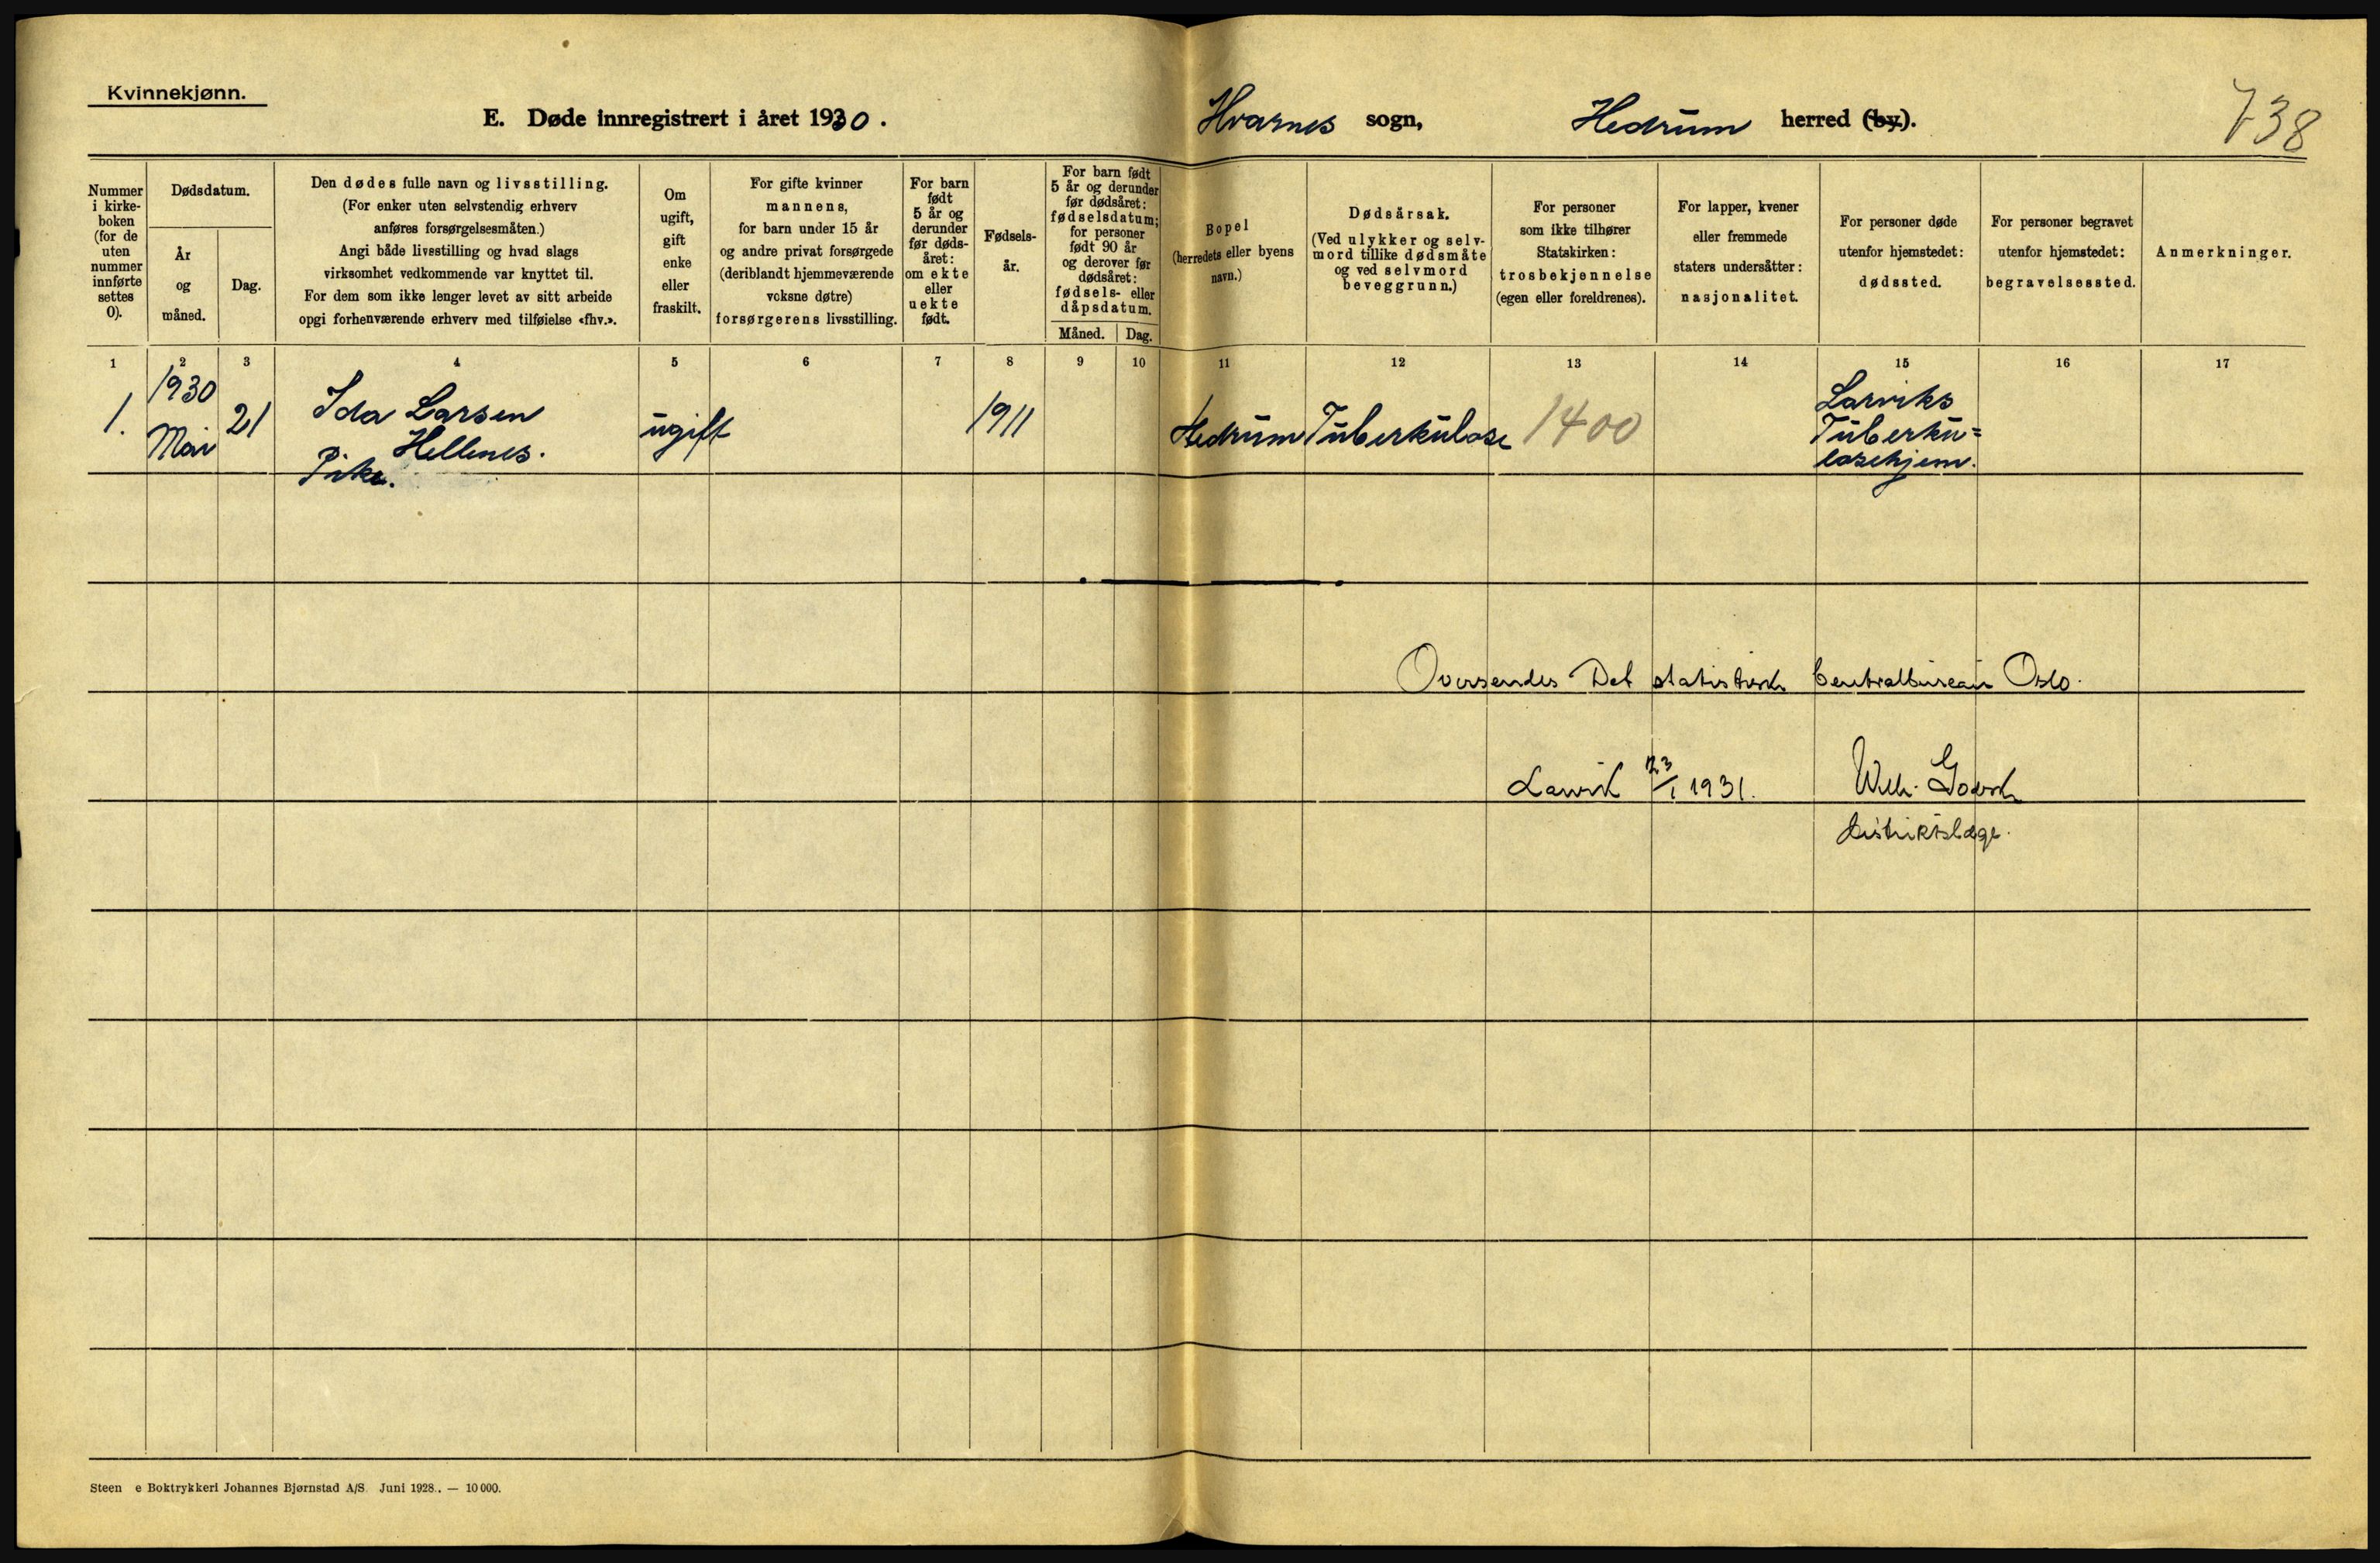 Kvinnekjønn.
E. Døde innregistrert i året 1930.
Hvarnes sogn, Hedrum herred (by).
738
Nummer i kirke- boken (for de uten nummer innførte settes 0).
Dødsdatum.
År og måned.
Dag.
Den dødes fulle navn og livsstilling.
(For enker uten selvstendig erhverv
anføres forsørgelsesmåten.)
Angi både livsstilling og hvad slags
virksomhet vedkommende var knyttet til.
For dem som ikke lenger levet av sitt arbeide
opgi forhenværende erhverv med tilføielse «fhv.».
Om
ugift,
gift
enke
eller
fraskilt.
For gifte kvinner
mannens,
for barn under 15 år
og andre privat forsørgede
(deriblandt hjemmeværende
voksne døtre)
forsørgerens livsstilling.
For barn
født
5 år og
derunder
før døds-
året:
om ekte
eller
uekte
født.
Fødsels-
år.
For barn født
5 år og derunder
før dødsåret:
fødselsdatum;
for personer
født 90 år
og derover før
dødsåret:
fødsels- eller
dåpsdatum.
Måned.
Dag.
Bopel
(herredets eller byens
navn.)
Dødsårsak.
(Ved ulykker og selv-
mord tillike dødsmåte
og ved selvmord
beveggrunn.)
For personer
som ikke tilhører
Statskirken:
trosbekjennelse
(egen eller foreldrenes).
For lapper, kvener
eller fremmede
staters undersåtter:
nasjonalitet.
For personer døde
utenfor hjemstedet:
dødssted.
For personer begravet
utenfor hjemstedet:
begravelsessted.
Anmerkninger.
1 2 3 4 5 6 7 8 9 10 11 12 13 14 15 16 17
1.
1930
Mai
21
Ida Larsen
Hellenes.
Pike.
ugift
1911
Hedrum
Tuberkulose
1400
Larviks
Tuberku=
losehjem.
Oversendes Det statistisk Centralbureau Oslo.
Larvik 23/1 1931.
Wilh.
Distriktslæge.
Steen e Boktrykkeri Johannes Bjørnstad A/S. Juni 1928.. — 10 000.